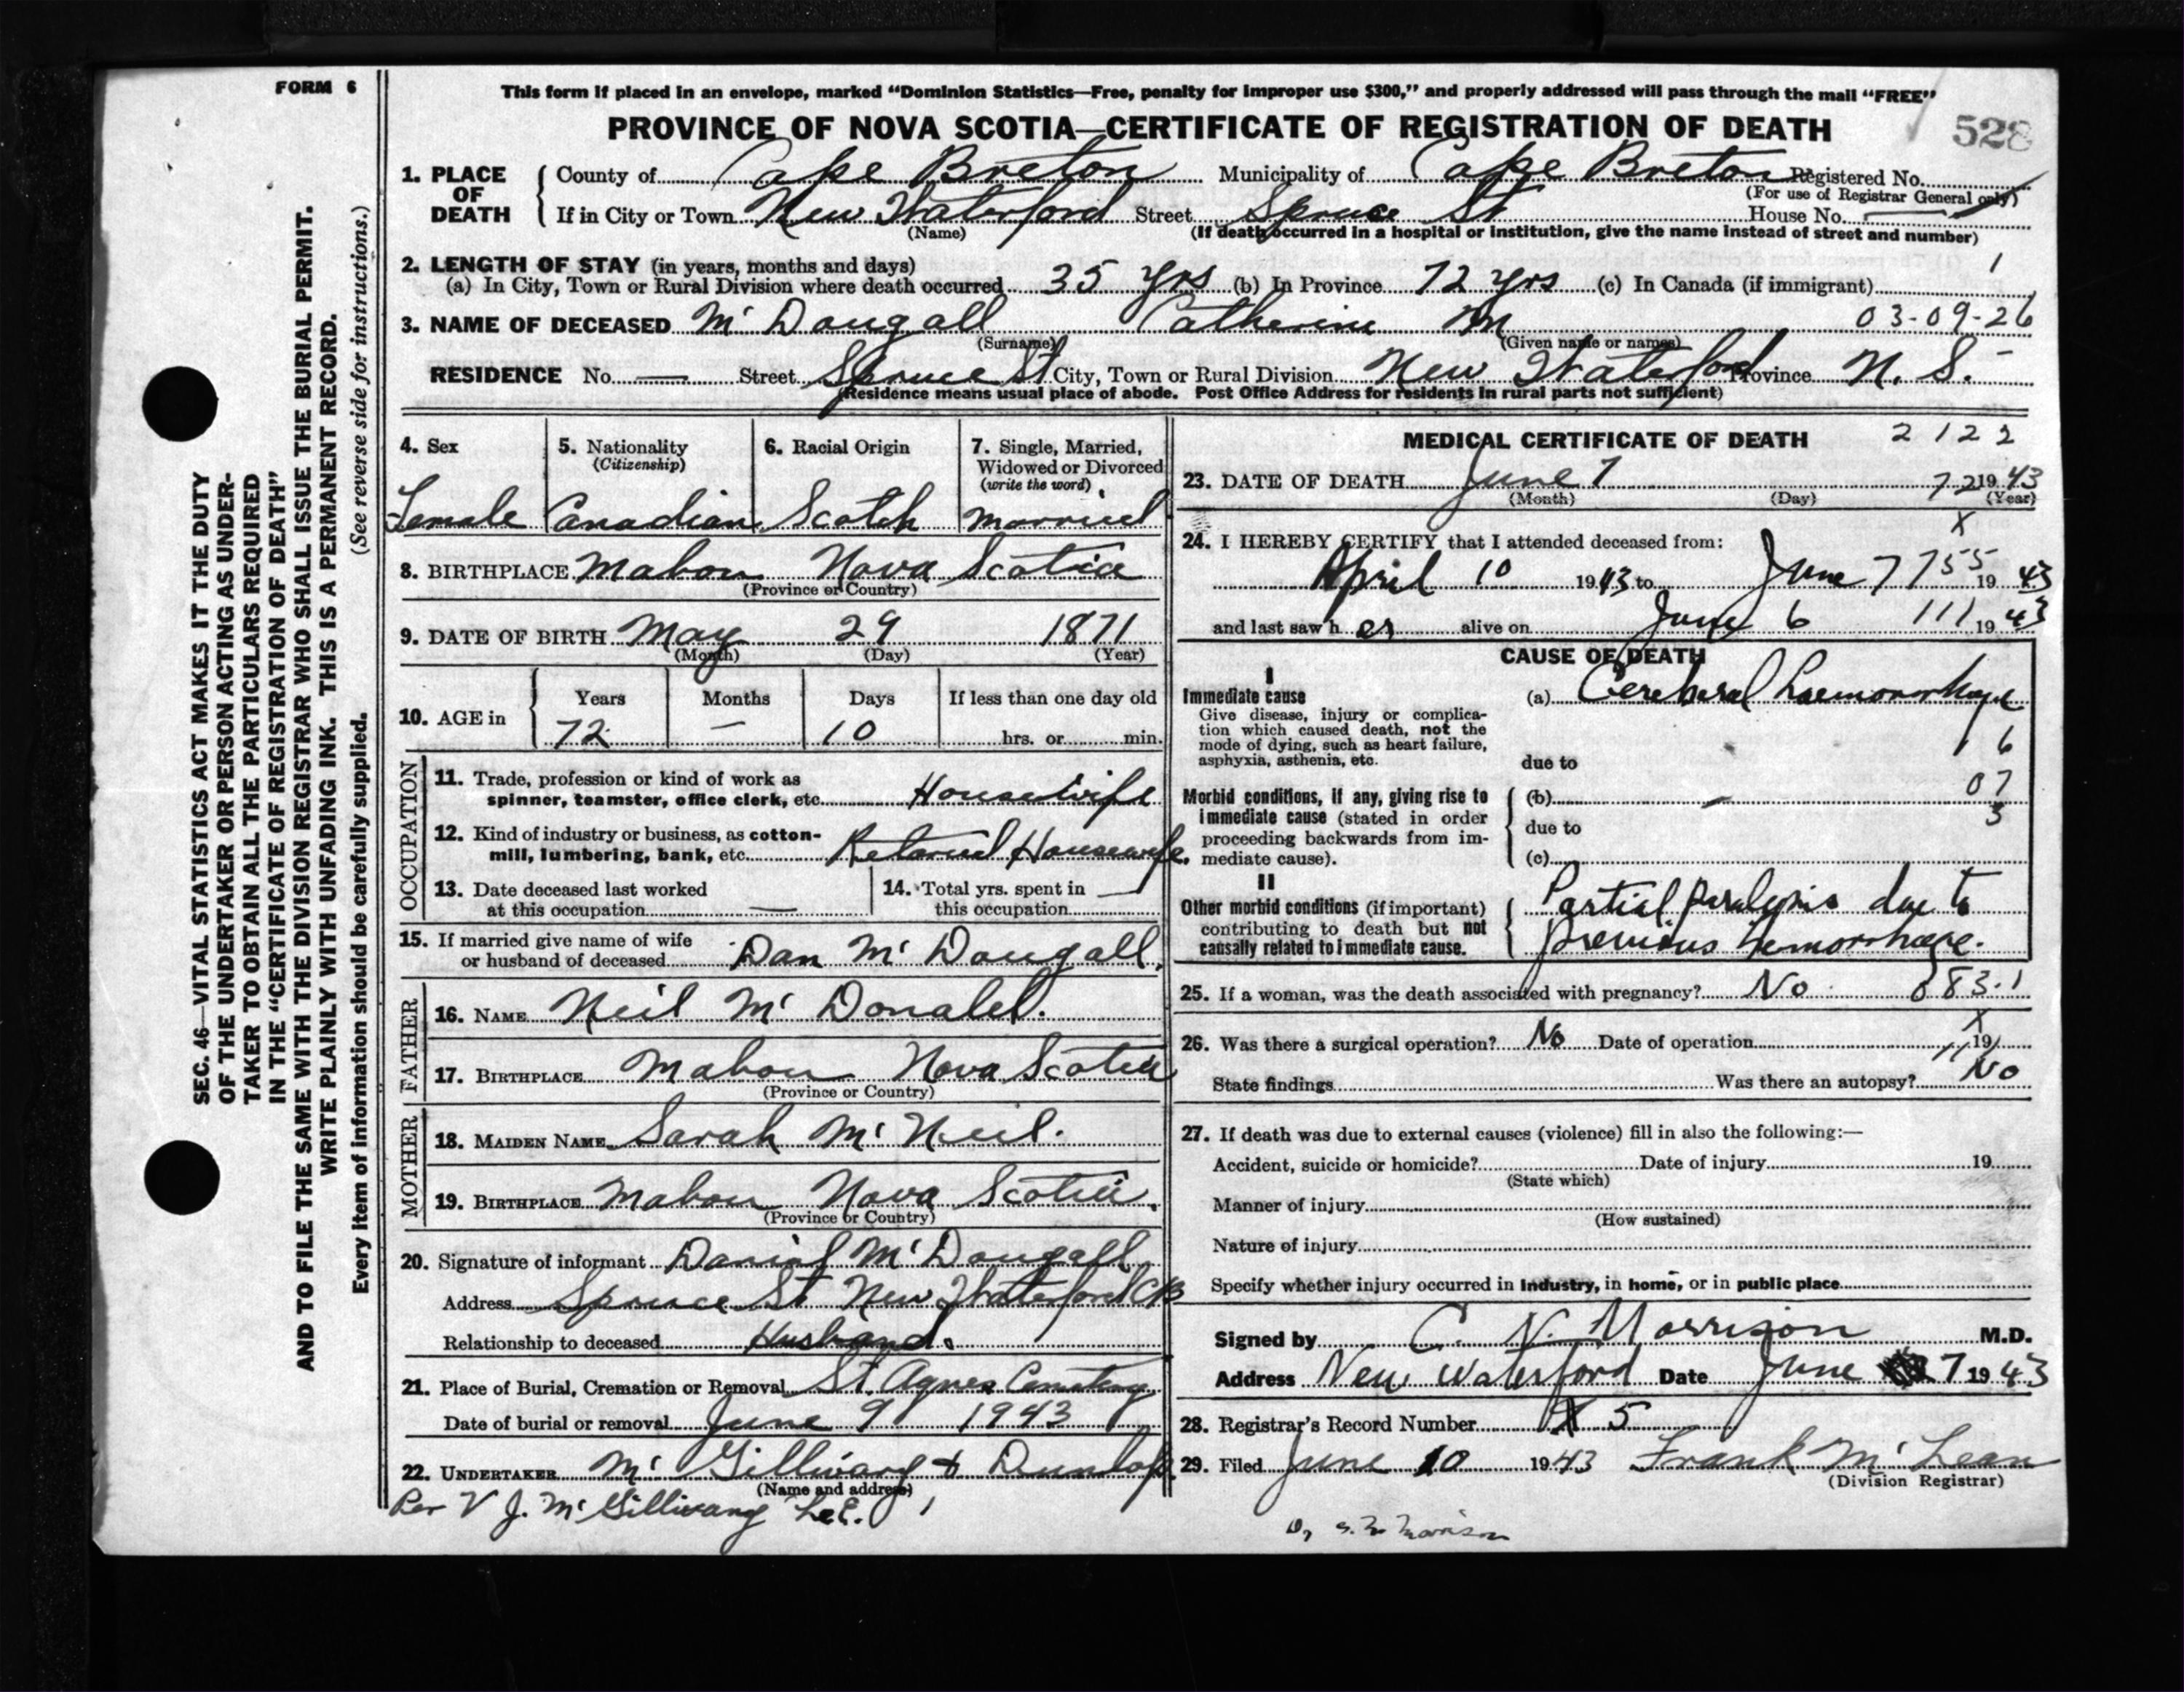 FORM 6
SEC. 46—VITAL STATISTICS ACT MAKES IT THE DUTY
OF THE UNDERTAKER OR PERSON ACTING AS UNDER-
TAKER TO OBTAIN ALL THE PARTICULARS REQUIRED
IN THE "CERTIFICATE OF REGISTRATION OF DEATH"
AND TO FILE THE SAME WITH THE DIVISION REGISTRAR WHO SHALL ISSUE THE BURIAL PERMIT.
WRITE PLAINLY WITH UNFADING INK. THIS IS A PERMANENT RECORD.
Every item of information should be carefully supplied. (See reverse side for instructions.)
This form if placed in an envelope, marked "Dominion Statistics—Free, penalty for improper use $300," and properly addressed will pass through the mail "FREE"
PROVINCE OF NOVA SCOTIA—CERTIFICATE OF REGISTRATION OF DEATH 528
1. PLACE OF DEATH County of Cape Breton Municipality of Cape Breton Registered No.
(For use of Registrar General only)
If in City or Town New Waterford Street Spruce St House No. —
(Name) (If death occurred in a hospital or institution, give the name instead of street and number)
2. LENGTH OF STAY (in years, months and days) 1
(a) In City, Town or Rural Division where death occurred 35 yrs (b) In Province 72 yrs (c) In Canada (if immigrant)
3. NAME OF DECEASED Mc Dougall Catherine 03-09-26
(Surname) (Given name or names)
RESIDENCE No. — Street Spruce St City, Town or Rural Division New Waterford Province N. S.
(Residence means usual place of abode. Post Office Address for residents in rural parts not sufficient)
4. Sex 5. Nationality (Citizenship) 6. Racial Origin 7. Single, Married, Widowed or Divorced (write the word)
Female Canadian Scotch Married
8. BIRTHPLACE Mabou Nova Scotia
(Province or Country)
9. DATE OF BIRTH May 29 1871
(Month) (Day) (Year)
10. AGE in Years Months Days If less than one day old
72 — 10 hrs. or min.
OCCUPATION
11. Trade, profession or kind of work as
spinner, teamster, office clerk, etc. Housewife
12. Kind of industry or business, as cotton-
mill, lumbering, bank, etc. Retired Housewife.
13. Date deceased last worked
at this occupation —
14. Total yrs. spent in
this occupation —
15. If married give name of wife
or husband of deceased Dan Mc Dougall.
FATHER
16. NAME Neil Mc Donald.
17. BIRTHPLACE Mabou Nova Scotia
(Province or Country)
MOTHER
18. MAIDEN NAME Sarah Mc Neil.
19. BIRTHPLACE Mabou Nova Scotia.
(Province or Country)
20. Signature of informant Daniel Mc Dougall
Address Spruce St New Waterford CB
Relationship to deceased Husband.
21. Place of Burial, Cremation or Removal St. Agnes Cemetery
Date of burial or removal June 9 1943
22. UNDERTAKER Mc Gillivary & Dunlop.
(Name and address)
Per V J. Mc Gillivary
MEDICAL CERTIFICATE OF DEATH 2122
23. DATE OF DEATH June 7 72 1943
(Month) (Day) (Year)
X
24. I HEREBY CERTIFY that I attended deceased from:
April 10 1943 to June 7 755 1943
and last saw her alive on June 6 111 1943
CAUSE OF DEATH
I
Immediate cause
Give disease, injury or complica-
tion which caused death, not the
mode of dying, such as heart failure,
asphyxia, asthenia, etc.
(a) Cerebral haemorrhage
16
due to
07
Morbid conditions, if any, giving rise to
immediate cause (stated in order
proceeding backwards from im-
mediate cause).
(b) —
3
due to
(c)
II
Other morbid conditions (if important)
contributing to death but not
causally related to immediate cause.
Partial paralysis due to
previous hemorrhage.
25. If a woman, was the death associated with pregnancy? No 083.1
X
26. Was there a surgical operation? No Date of operation 19
State findings Was there an autopsy? No
27. If death was due to external causes (violence) fill in also the following:—
Accident, suicide or homicide? Date of injury 19
(State which)
Manner of injury
(How sustained)
Nature of injury
Specify whether injury occurred in industry, in home, or in public place
Signed by C. N. Morrison M.D.
Address New Waterford Date June 7 1943
28. Registrar's Record Number X 5
29. Filed June 10 1943 Frank Mc Lean
(Division Registrar)
Morrison